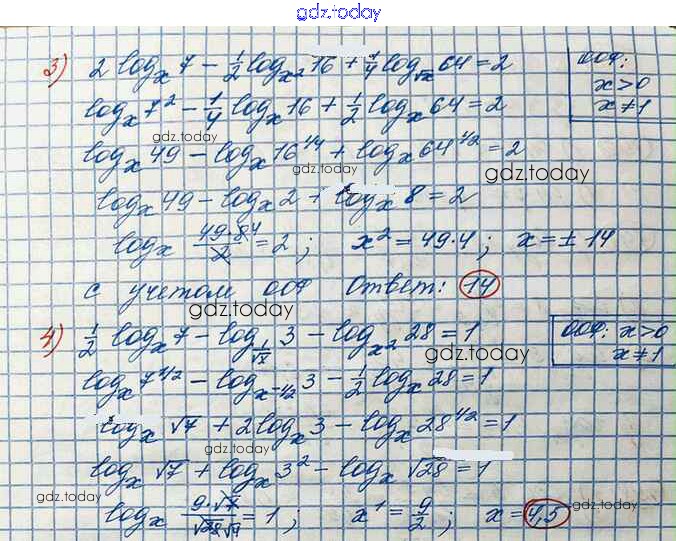 gdz.today
3) 2 log_x 7 - 1/2 log_{x^2} 16 + 1/4 log_{√x} 64 = 2
ООФ:
x > 0
x ≠ 1
log_x 7^2 - 1/4 log_x 16 + 1/2 log_x 64 = 2
gdz.today
log_x 49 - log_x 16^{1/4} + log_x 64^{1/2} = 2
gdz.today gdz.today
log_x 49 - log_x 2 + log_x 8 = 2
log_x (49·8 4)/2 = 2; x^2 = 49·4; x = ±14
с учетом ООФ Ответ: 14
gdz.today
4) 1/2 log_x 7 - log_{1/√x} 3 - log_{x^2} 28 = 1
ООФ: x > 0
x ≠ 1
gdz.today
log_x 7^{1/2} - log_{x^{-1/2}} 3 - 1/2 log_x 28 = 1
log_x √7 + 2 log_x 3 - log_x 28^{1/2} = 1
gdz.today
log_x √7 + log_x 3^2 - log_x √28 = 1
gdz.today gdz.today gdz.today
log_x (9·√7)/(√28 √4) = 1; x^1 = 9/2; x = 4,5